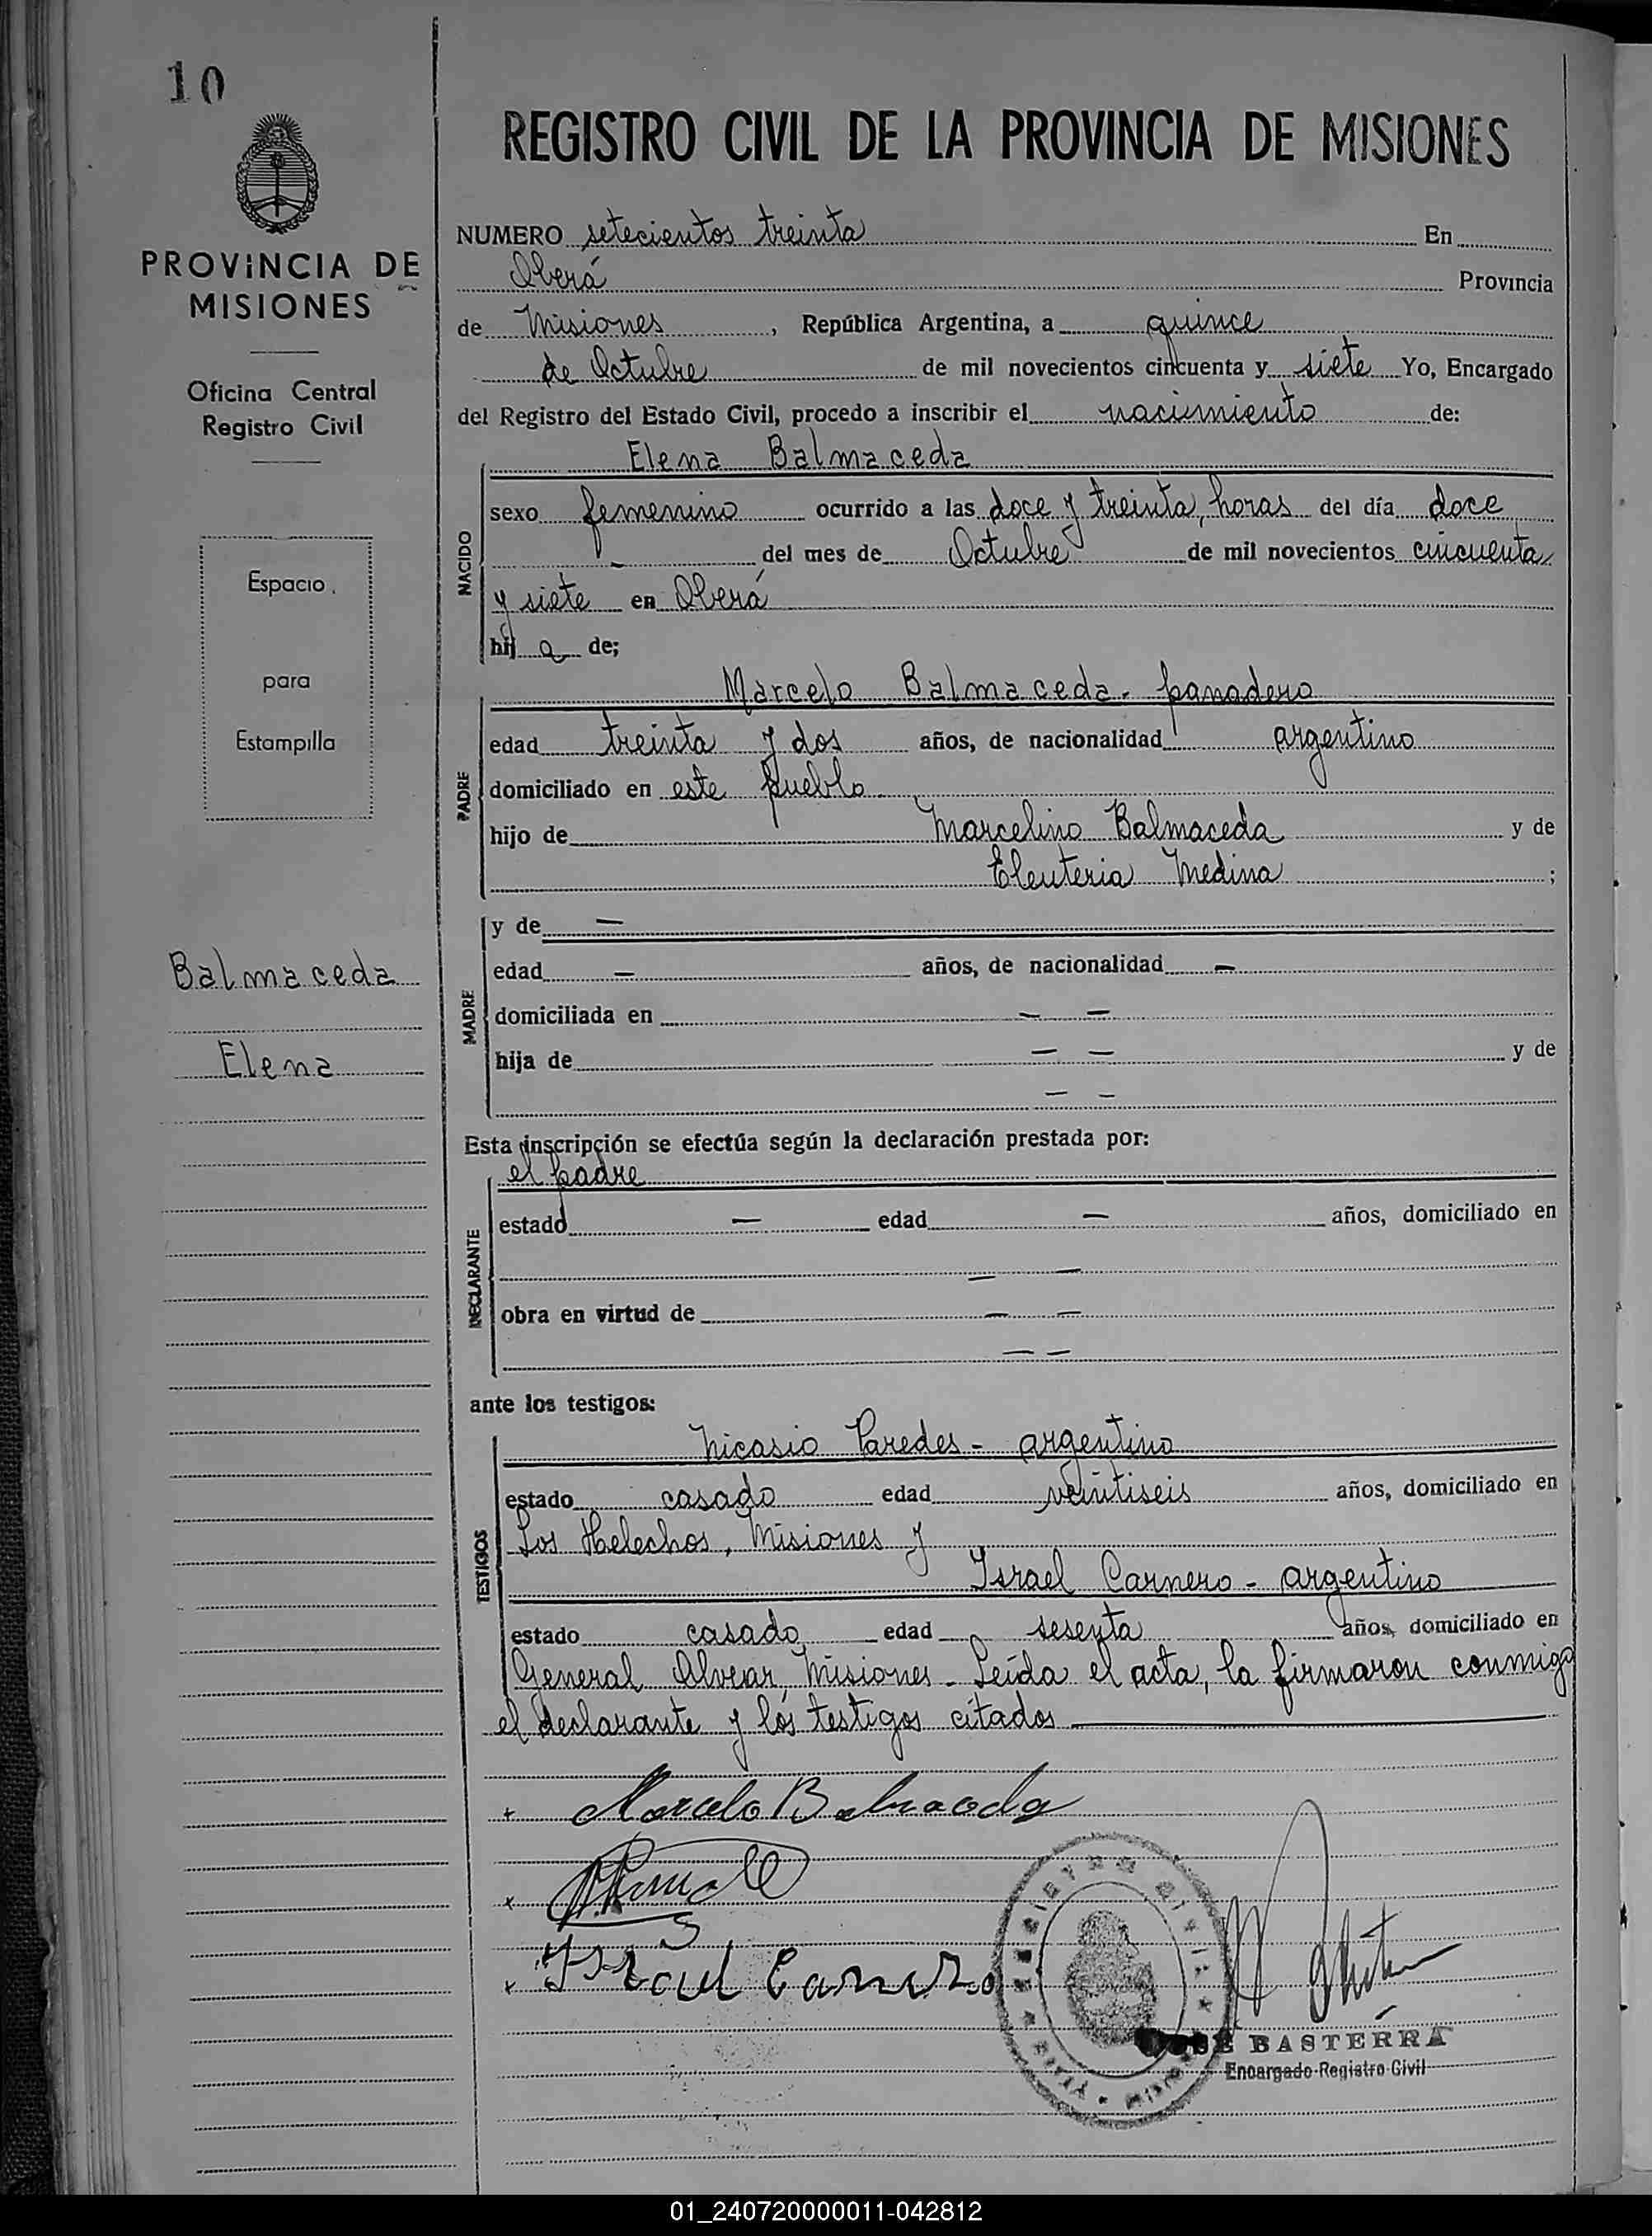 10
PROVINCIA DE
MISIONES
Oficina Central
Registro Civil
Espacio
para
Estampilla
Balmaceda
Elena
REGISTRO CIVIL DE LA PROVINCIA DE MISIONES
NUMERO setecientos treinta En
Oberá Provincia
de Misiones, República Argentina, a quince
de Octubre de mil novecientos cincuenta y siete Yo, Encargado
del Registro del Estado Civil, procedo a inscribir el nacimiento de:
Elena Balmaceda
NACIDO
sexo femenino ocurrido a las doce y treinta horas del día doce
— del mes de Octubre de mil novecientos cincuenta
y siete en Oberá
hij a de;
Marcelo Balmaceda - panadero
PADRE
edad treinta y dos años, de nacionalidad argentino
domiciliado en este pueblo
hijo de Marcelino Balmaceda y de
Eleuteria Medina ;
MADRE
y de —
edad — años, de nacionalidad —
domiciliada en — —
hija de — — y de
— —
Esta inscripción se efectúa según la declaración prestada por:
el padre
DECLARANTE
estado — edad — años, domiciliado en
— —
obra en virtud de — —
— —
ante los testigos:
TESTIGOS
Nicasio Paredes - argentino
estado casado edad veintiseis años, domiciliado en
Los Helechos, Misiones y
Israel Carnero - argentino
estado casado edad sesenta años, domiciliado en
General Alvear, Misiones - Leída el acta, la firmaron conmigo
el declarante y los testigos citados
x Marcelo Balmaceda
x
x Israel Carnero
REGISTRO CIVIL
BASTERRA
Encargado Registro Civil
01_240720000011-042812